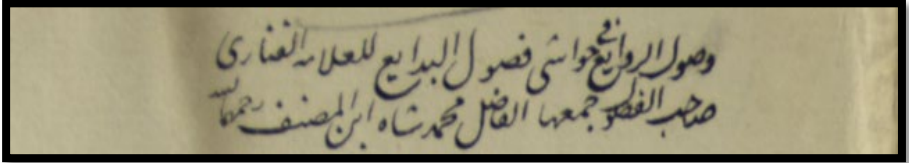 وصول الروايع في حواشى فصول البدايع للعلامه الفنارى
صاحب الفصول جمعها الفاضل محمد شاه ابن المصنف رحمهما الله